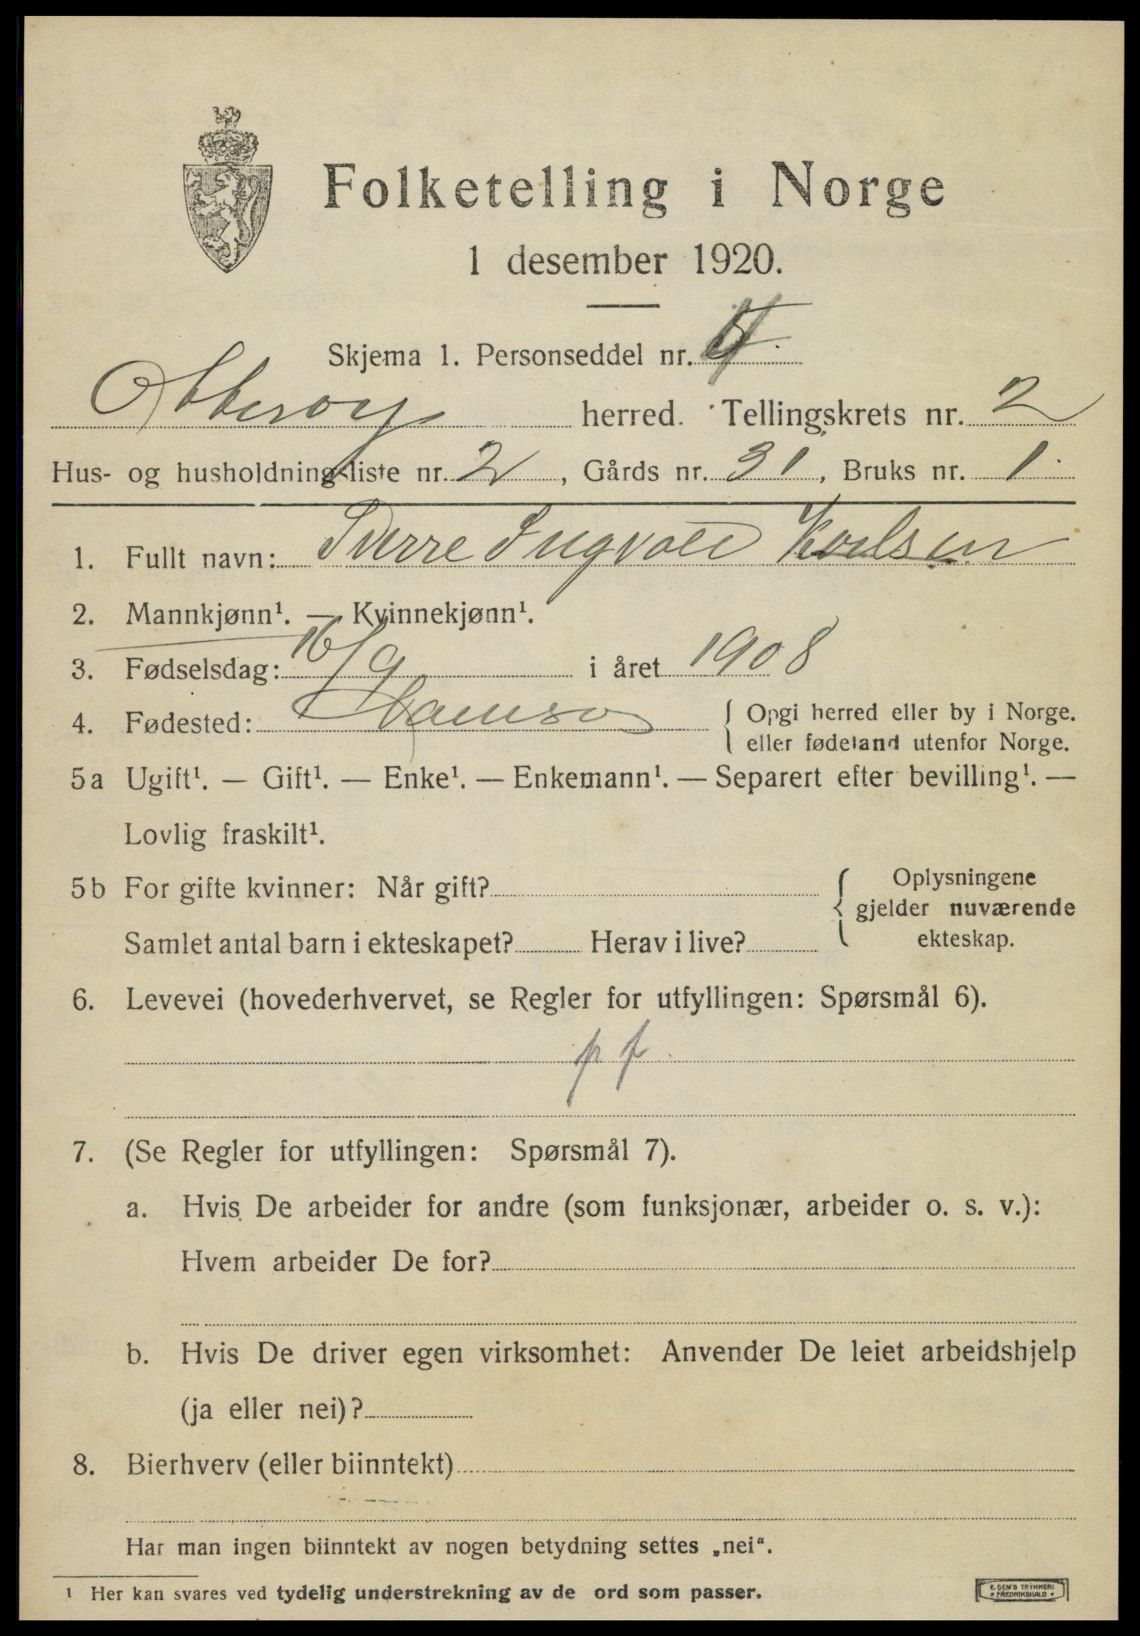 Folketelling i Norge
1 desember 1920.
Skjema 1. Personseddel nr.
Otterøy herred. Tellingskrets nr. 2
Hus- og husholdningsliste nr. 2, Gårds nr. 31, Bruks nr. 1.
1. Fullt navn: Sverre Ingvald Karlsen
2. Mannkjønn¹. — Kvinnekjønn¹.
3. Fødselsdag: 16/9 i året 1908
4. Fødested: { Opgi herred eller by i Norge.
eller fødeland utenfor Norge.
5a Ugift¹. — Gift¹. — Enke¹. — Enkemann¹. — Separert efter bevilling¹. —
Lovlig fraskilt¹.
5b For gifte kvinner: Når gift? { Oplysningene
gjelder nuværende
Samlet antal barn i ekteskapet? Herav i live? ekteskap.
6. Levevei (hovederhvervet, se Regler for utfyllingen: Spørsmål 6).
p f
7. (Se Regler for utfyllingen: Spørsmål 7).
a. Hvis De arbeider for andre (som funksjonær, arbeider o. s. v.):
Hvem arbeider De for?
b. Hvis De driver egen virksomhet: Anvender De leiet arbeidshjelp
(ja eller nei)?
8. Bierhverv (eller biinntekt)
Har man ingen biinntekt av nogen betydning settes „nei“.
¹ Her kan svares ved tydelig understrekning av de ord som passer.
E. SEM'S TRYKKERI
* FREDRIKSHALD *